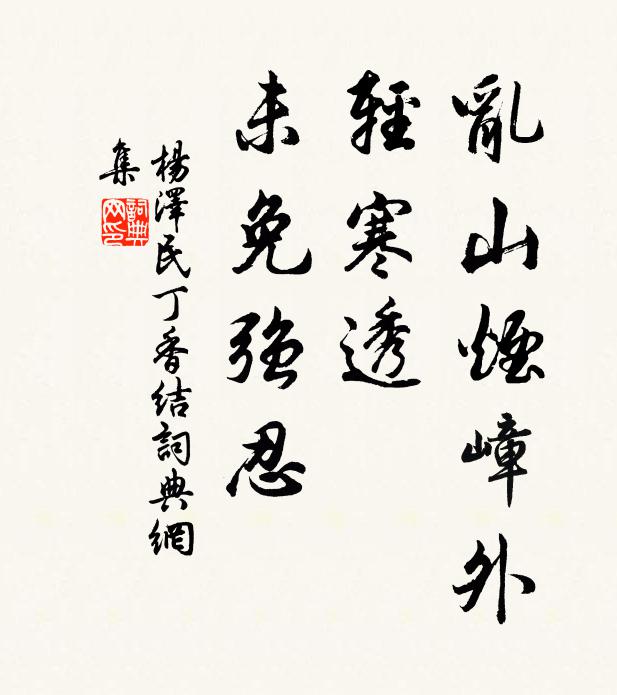 亂山煙嶂外
輕寒透
未免強忍
楊澤民丁香結詞典網
集
詞典
网印